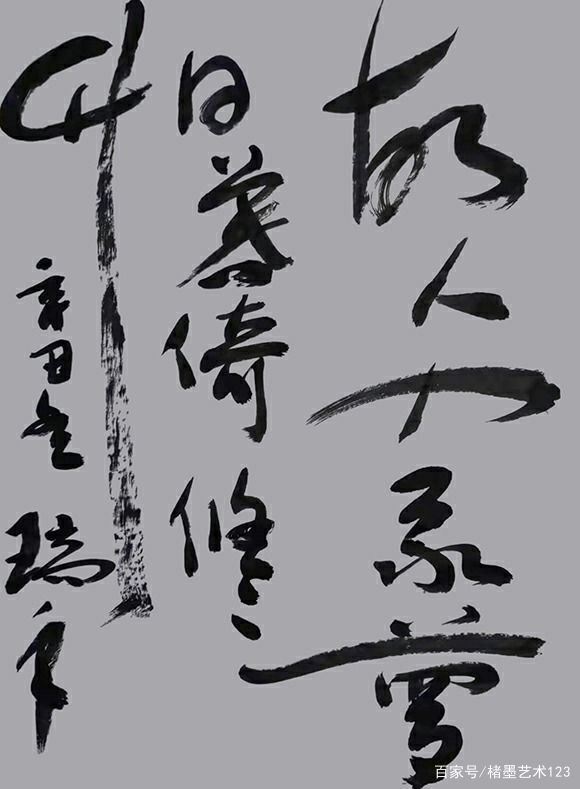 故人入我夢
日暮倚修
竹
辛丑 瑞年
百家号/楮墨艺术123